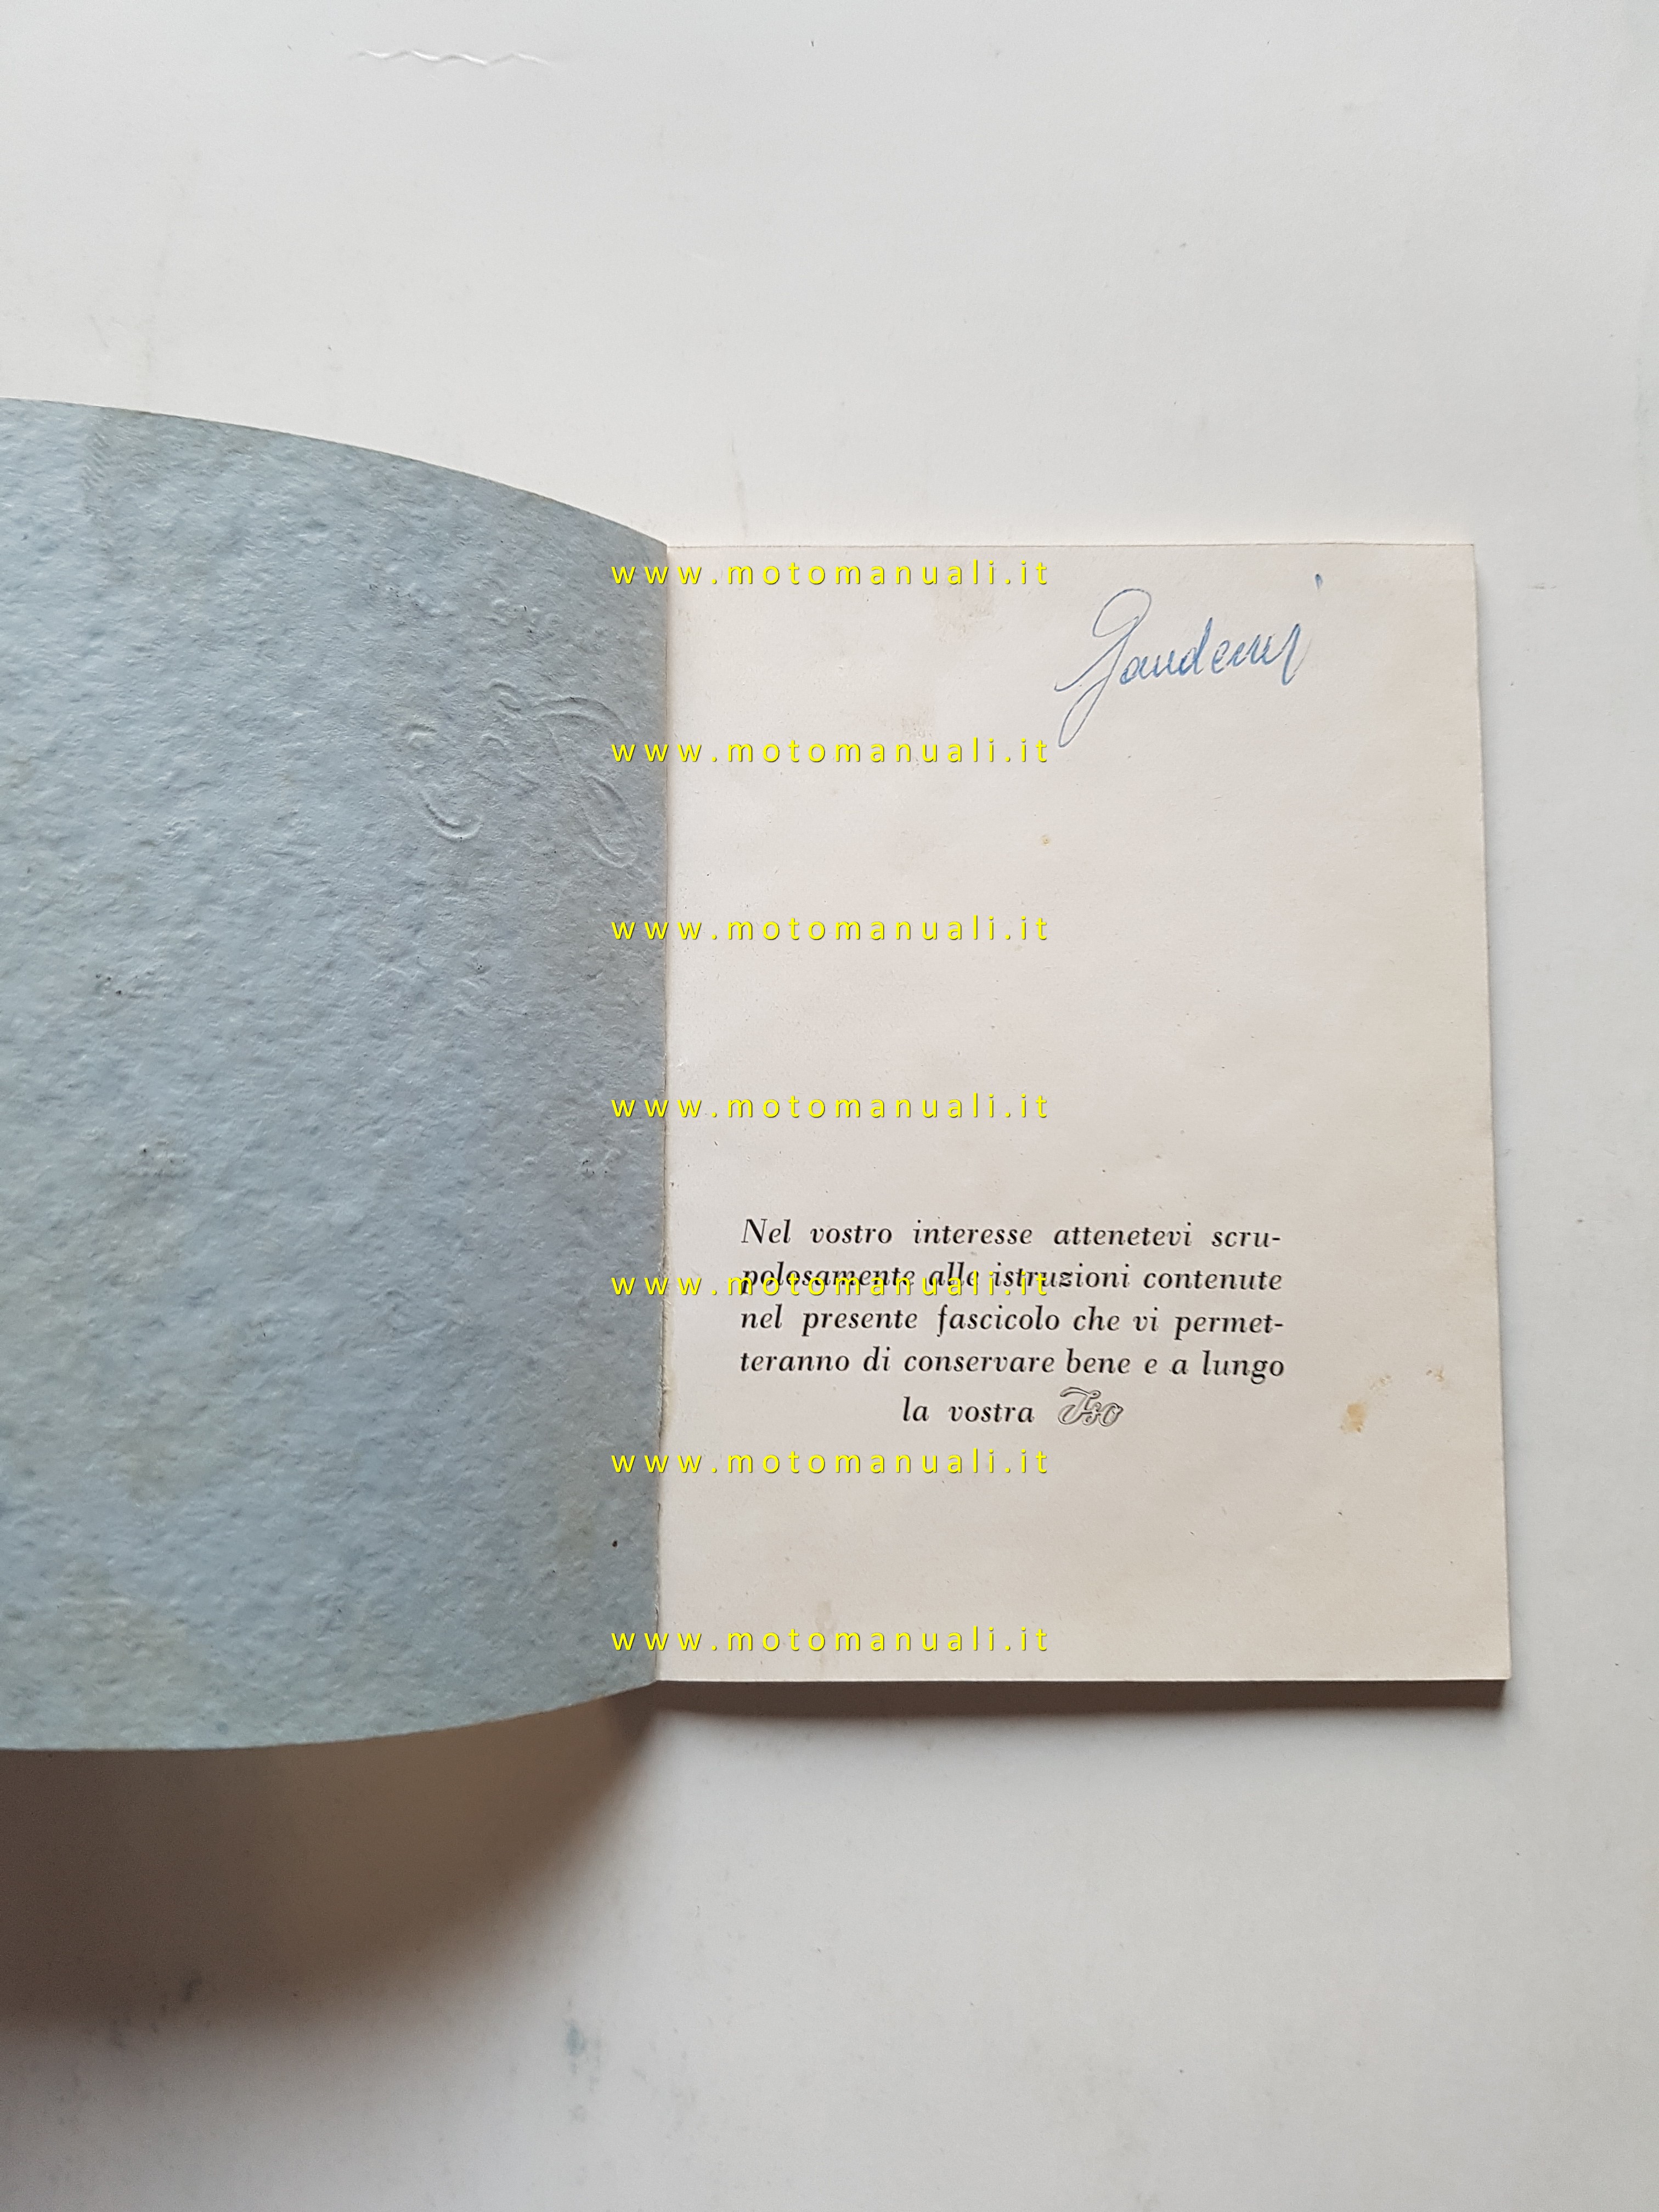 www.motomanuali.it
www.motomanuali.it
www.motomanuali.it
www.motomanuali.it
Nel vostro interesse attenetevi scru-
polosamente alle istruzioni contenute
www.motomanuali.it
nel presente fascicolo che vi permet-
teranno di conservare bene e a lungo
la vostra Iso
www.motomanuali.it
www.motomanuali.it